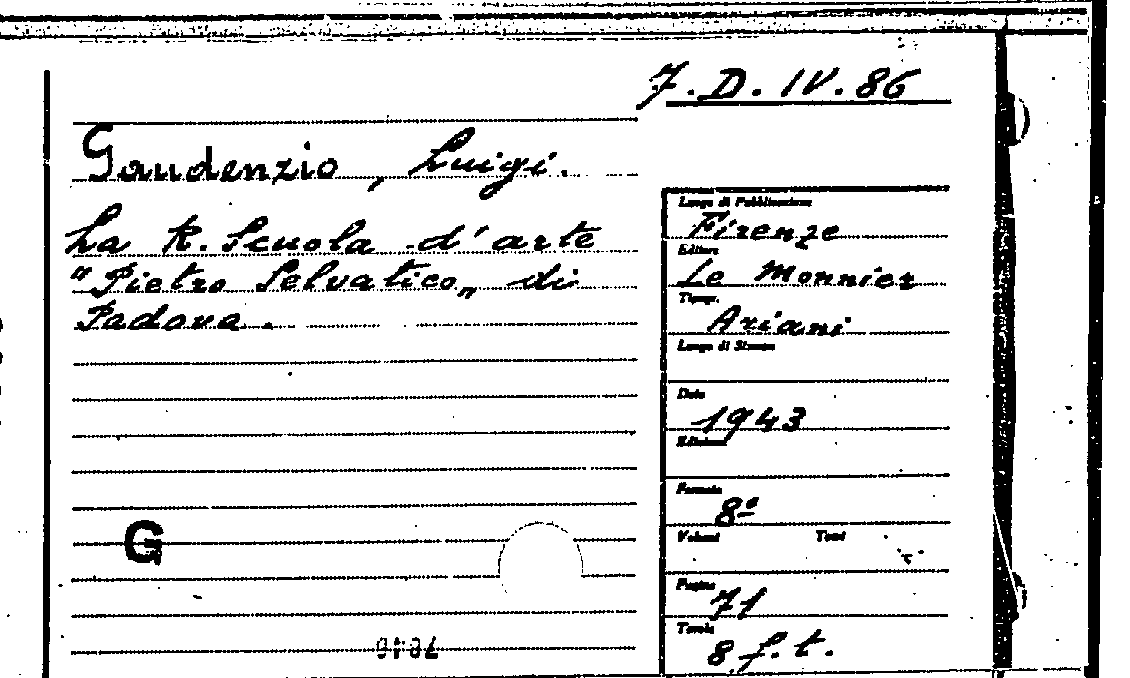 7.D.IV.86
Gaudenzio, Luigi.
La R. Scuola d'arte
"Pietro Selvatico„ di
Padova.
G
Luogo di Pubblicazione
Firenze
Editore
Le Monnier
Tipogr.
Ariani
Luogo di Stampa
Data
1943
Edizione
Formato
8º
Volumi Tomi
Pagine
71
Tavole
8 f.t.